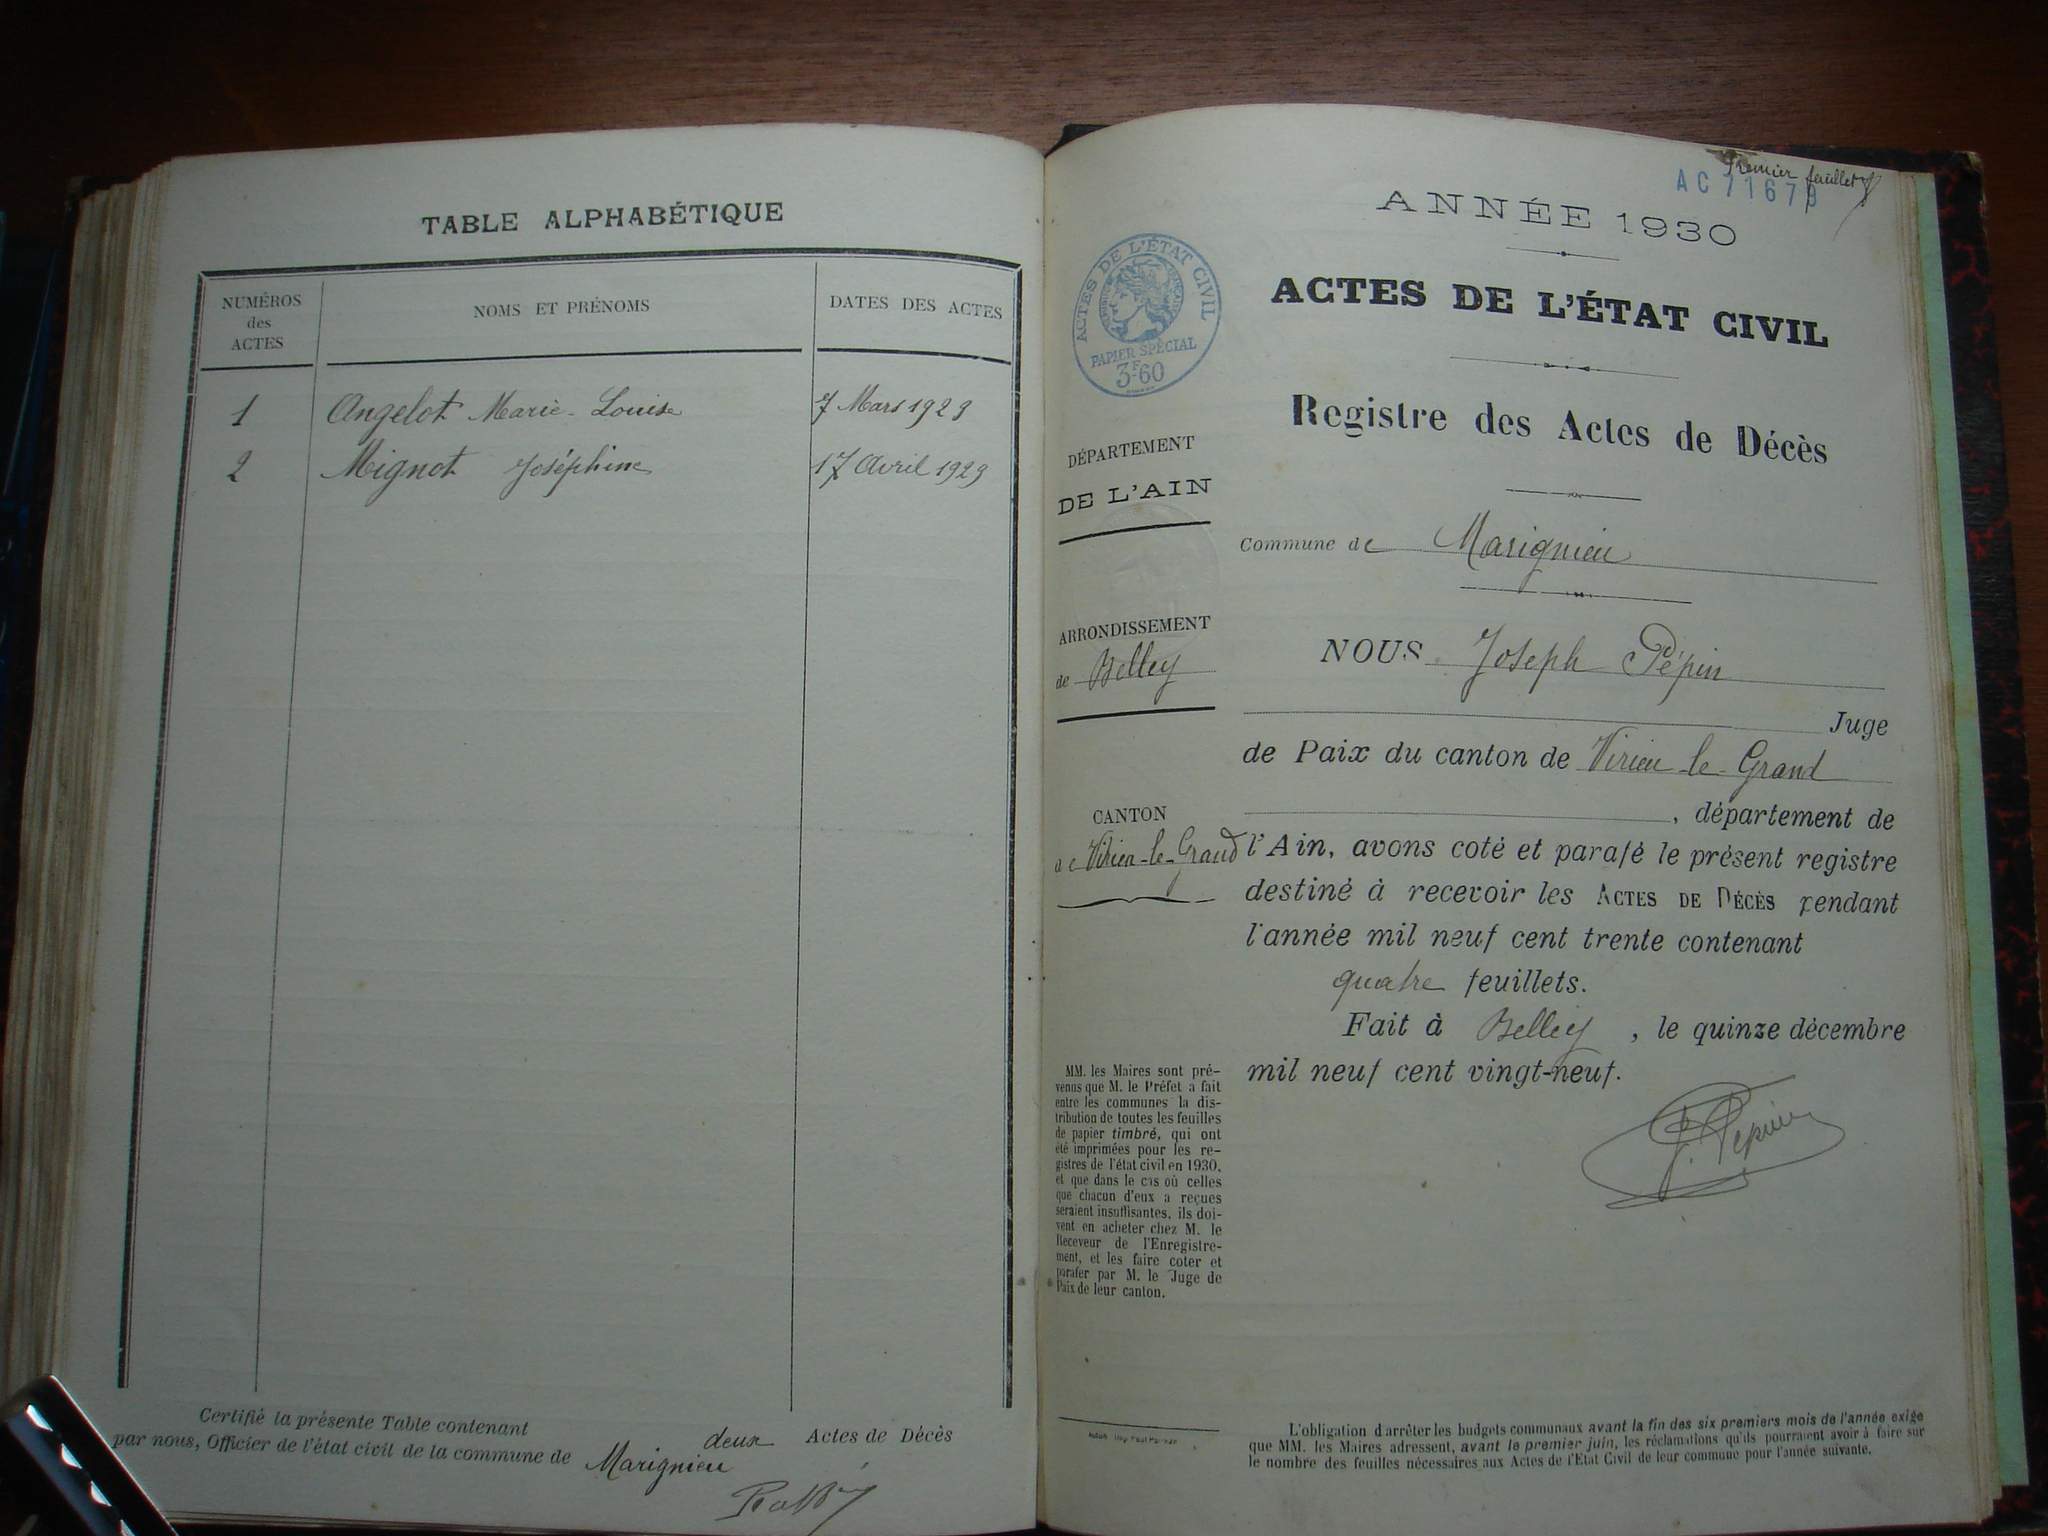 TABLE ALPHABÉTIQUE
NUMÉROS
des
ACTES
NOMS ET PRÉNOMS
DATES DES ACTES
1 Angelot Marie-Louise 7 Mars 1929
2 Mignot Joséphine 17 Avril 1929
Certifié la présente Table contenant deux Actes de Décès
par nous, Officier de l'état civil de la commune de Marignieu
Premier feuillet
AC 71679
ANNÉE 1930
ACTES DE L'ÉTAT CIVIL
PAPIER SPÉCIAL
3F60
ACTES DE L'ÉTAT CIVIL
Registre des Actes de Décès
DÉPARTEMENT
DE L'AIN
Commune de Marignieu
ARRONDISSEMENT
de Belley
NOUS Joseph Pépin
Juge
de Paix du canton de Virieu-le-Grand
, département de
CANTON
de Virieu-le-Grand
l'Ain, avons coté et parafé le présent registre
destiné à recevoir les ACTES DE DÉCÈS pendant
l'année mil neuf cent trente contenant
quatre feuillets.
Fait à Belley, le quinze décembre
mil neuf cent vingt-neuf.
J. Pépin
MM. les Maires sont pré-
venus que M. le Préfet a fait
entre les communes la dis-
tribution de toutes les feuilles
de papier timbré, qui ont
été imprimées pour les re-
gistres de l'état civil en 1930,
et que dans le cas où celles
que chacun d'eux a reçues
seraient insuffisantes, ils doi-
vent en acheter chez M. le
Receveur de l'Enregistre-
ment, et les faire coter et
parafer par M. le Juge de
Paix de leur canton.
L'obligation d'arrêter les budgets communaux avant la fin des six premiers mois de l'année exige
que MM. les Maires adressent, avant le premier juin, les réclamations qu'ils pourraient avoir à faire sur
le nombre des feuilles nécessaires aux Actes de l'Etat Civil de leur commune pour l'année suivante.